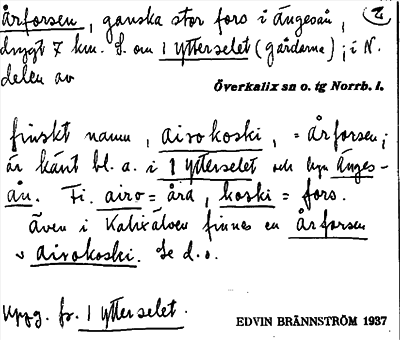 årforsen, ganska stor fors i ängesån, 2
drygt 7 km. S. om 1 ytterselet (gårdarna); i N.
delen av
Överkalix sn o. tg Norrb. l.
finskt namn, airokoski, = årforsen;
är känt bl. a. i 1 ytterselet och byn änges-
ån. Fi. airo = åra, koski = fors.
även i Kalixälven finnes en årforsen
airokoski. Se d.o.
Uppg. fr. 1 ytterselet.
EDVIN BRÄNNSTRÖM 1937